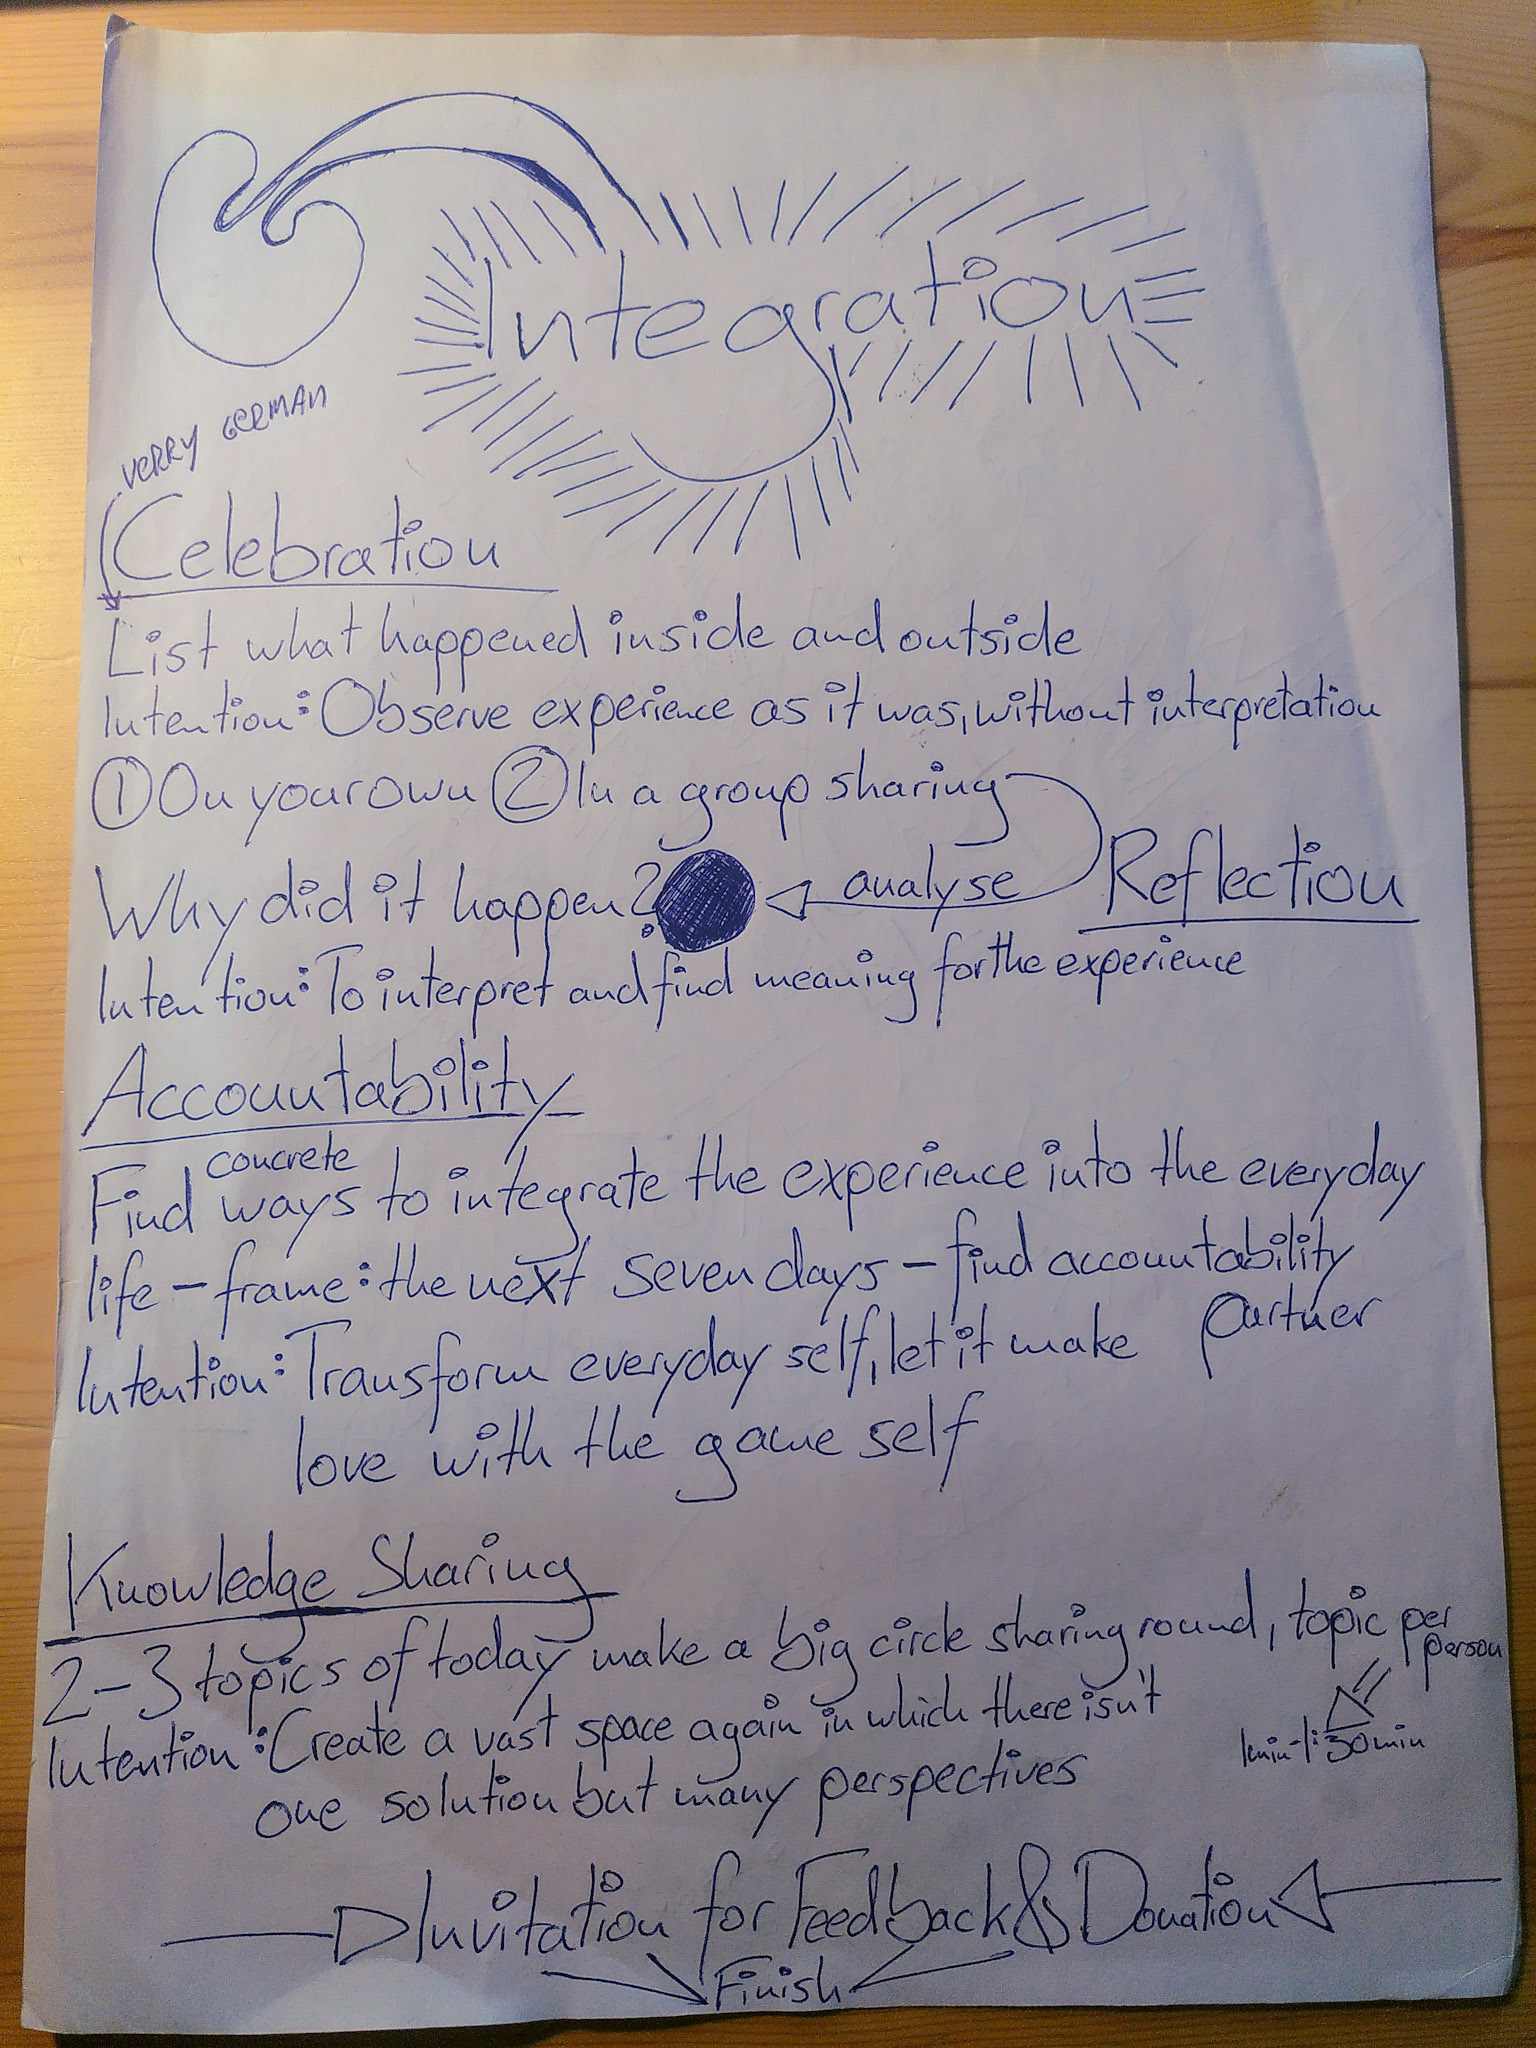 Integration
VERRY GERMAN
Celebration
List what happened inside and outside
Intention: Observe experience as it was, without interpretation
① On your own ② In a group sharing
Why did it happen? analyse Reflection
Intention: To interpret and find meaning for the experience
Accountability
concrete
Find ways to integrate the experience into the everyday
life - frame: the next seven days - find accountability
partner
Intention: Transform everyday self, let it make
love with the game self
Knowledge Sharing
2-3 topics of today make a big circle sharing round, topic per
person
Intention: Create a vast space again in which there isn't
1min-1:30min
one solution but many perspectives
Invitation for Feedback & Donation
Finish